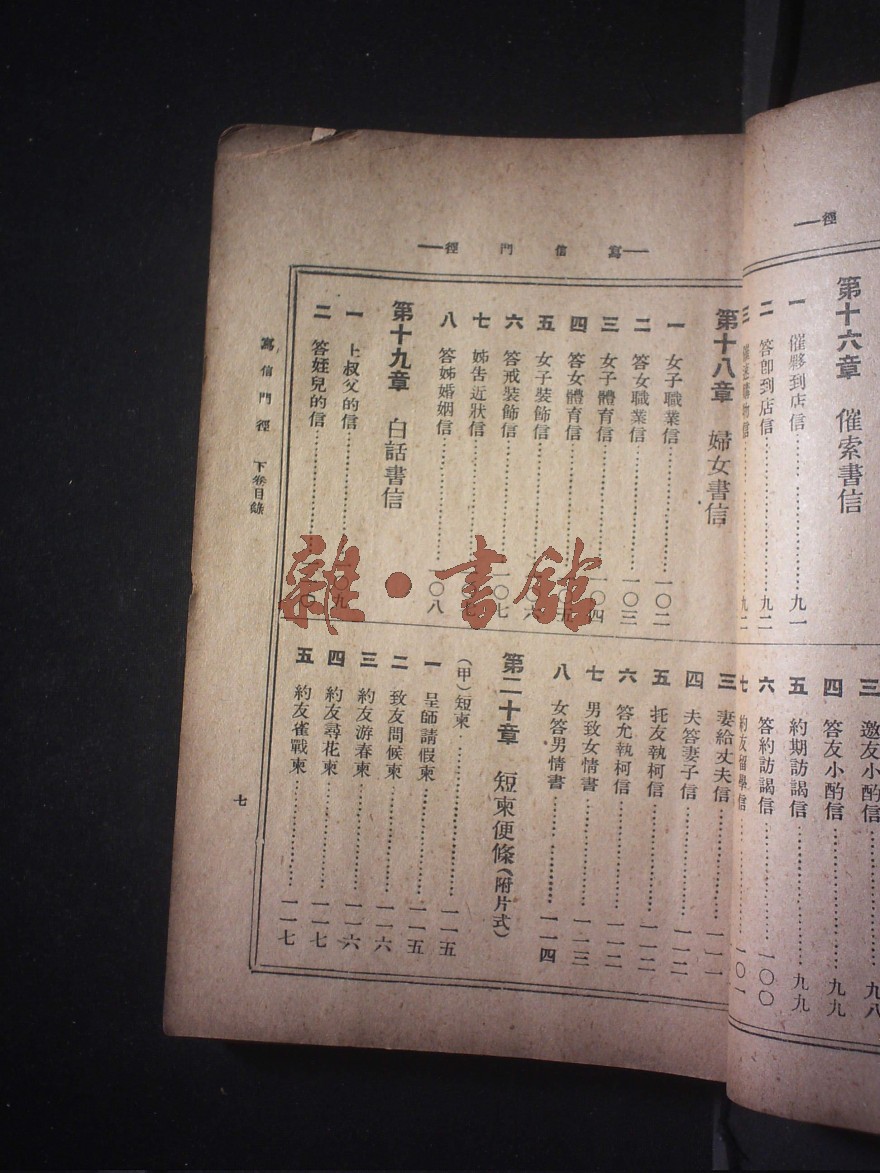 徑
第十六章　催索書信
一　催夥到店信…………九一
二　答卽到店信…………九二
三　催速購物信…………九二
三　邀友小酌信…………九八
四　答友小酌信…………九九
五　約期訪謁信…………九九
六　答約訪謁信…………一〇〇
七　約友留學信…………一〇一
寫信門徑
第十八章　婦女書信
一　女子職業信…………一〇二
二　答女職業信…………一〇三
三　女子體育信…………一〇四
四　答女體育信…………一〇五
五　女子裝飾信…………六
六　答戒裝飾信…………一〇七
七　姊告近狀信…………七
八　答姊婚姻信…………一〇八
第十九章　白話書信
一　上叔父的信…………〇九
二　答姪兒的信…………
三　妻給丈夫信…………一一一
四　夫答妻子信…………一一二
五　托友執柯信…………一一二
六　答允執柯信…………一一二
七　男致女情書…………一一三
八　女答男情書…………一一四
第二十章　短柬便條(附片式)
(甲)短柬…………一一五
一　呈師請假柬…………一一五
二　致友問候柬…………一一六
三　約友游春柬…………一一六
四　約友尋花柬…………一一七
五　約友雀戰柬…………一一七
寫信門徑　下卷目錄
七
雜·書館